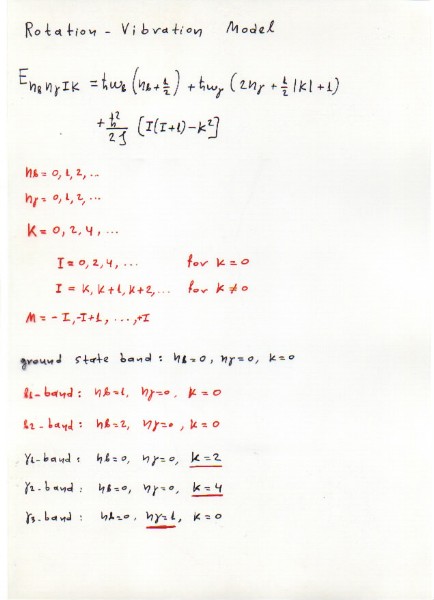 Rotation - Vibration Model
E_{n_b n_γ I K} = ħω_b (n_b + 1/2) + ħω_γ (2n_γ + 1/2 |K| + 1)
+ ħ²/2J [I(I+1) - K²]
n_b = 0, 1, 2, ...
n_γ = 0, 1, 2, ...
K = 0, 2, 4, ...
I = 0, 2, 4, ... for K = 0
I = K, K+1, K+2, ... for K ≠ 0
M = -I, -I+1, ..., +I
ground state band: n_b=0, n_γ=0, K=0
b1-band: n_b=1, n_γ=0, K=0
b2-band: n_b=2, n_γ=0, K=0
γ1-band: n_b=0, n_γ=0, K=2
γ2-band: n_b=0, n_γ=0, K=4
γ3-band: n_b=0, n_γ=1, K=0